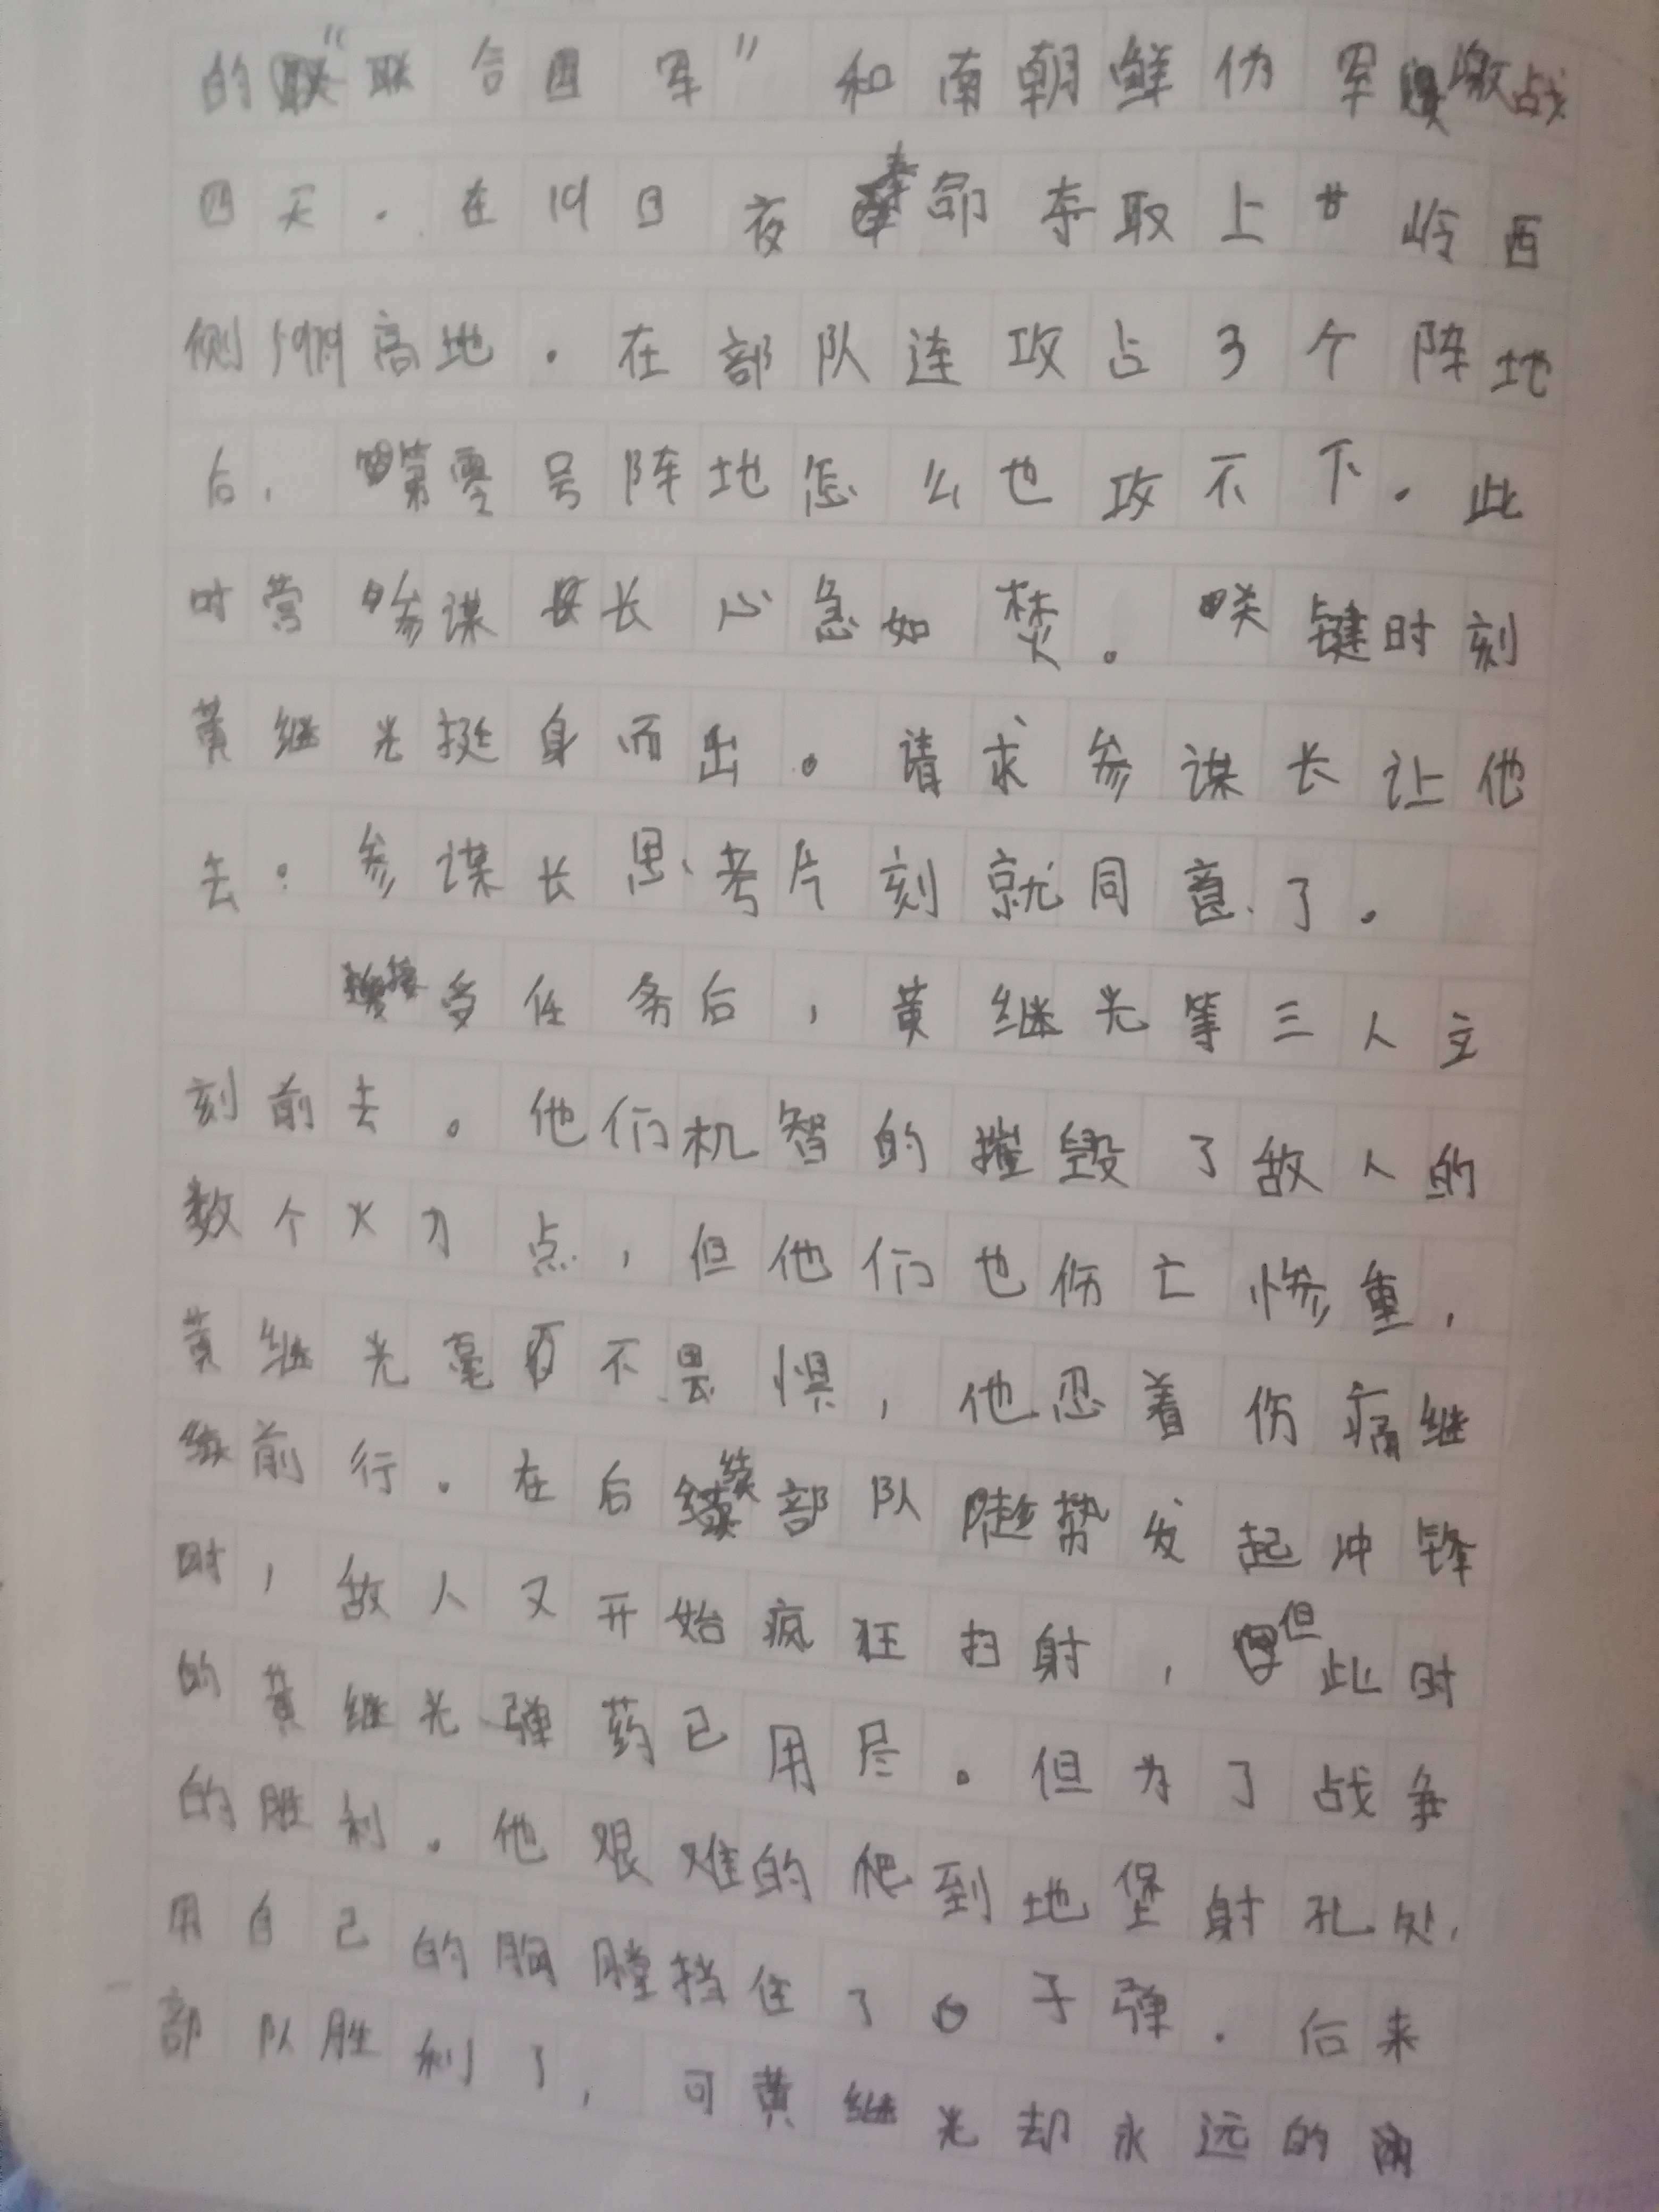 的“联合国军”和南朝鲜伪军激战
四天．在19日夜奉命夺取上甘岭西
侧597.9高地．在部队连攻占3个阵地
后，第零号阵地怎么也攻不下．此
时营参谋长心急如焚。关键时刻
黄继光挺身而出。请求参谋长让他
去。参谋长思考片刻就同意了。
接受任务后，黄继光等三人立
刻前去。他们机智的摧毁了敌人的
数个火力点，但他们也伤亡惨重，
黄继光毫不畏惧，他忍着伤痛继
续前行．在后续部队趁势发起冲锋
时，敌人又开始疯狂扫射，但此时
的黄继光弹药已用尽。但为了战争
的胜利．他艰难的爬到地堡射孔处，
用自己的胸膛挡住了子弹．后来
部队胜利了，可黄继光却永远的